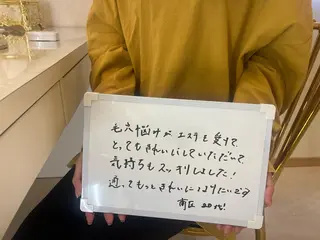 毛穴悩みがエステを受けて、
とってもきれいにしていただいて、
気持ちもスッキリしました！
通ってもっときれいになりたいです
南区 20代！